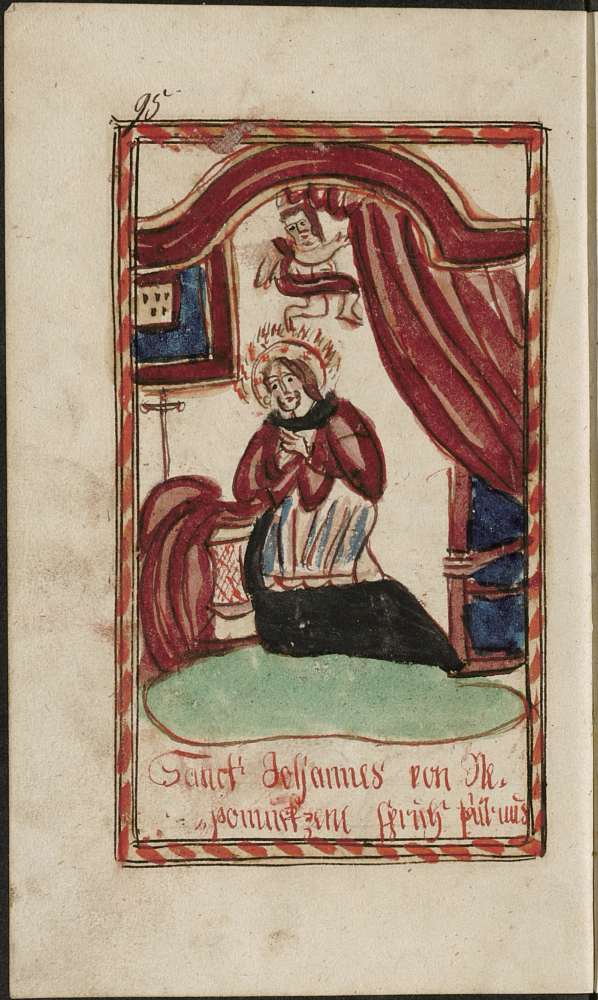 95
Sanct Johannes von Ne-
pomuckzene sprich für uns